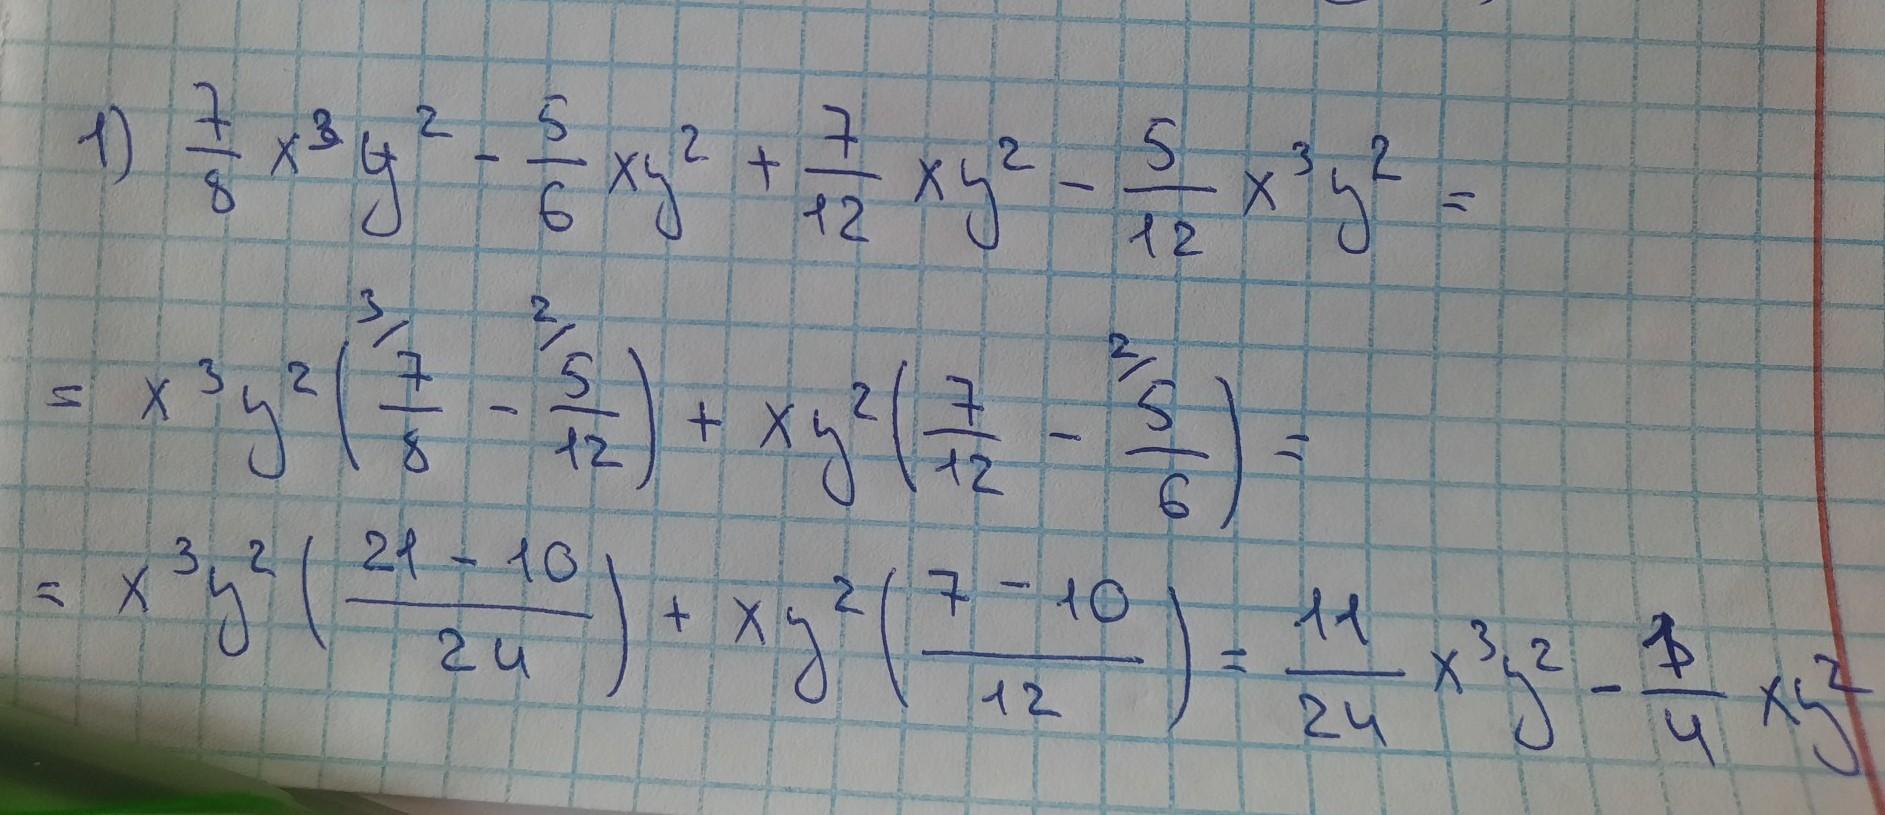 1) 7/8 x³y² - 5/6 xy² + 7/12 xy² - 5/12 x³y² =
= x³y² (³⁄ 7/8 - ²⁄ 5/12) + xy² (7/12 - ²⁄ 5/6) =
= x³y² ((21 - 10)/24) + xy² ((7 - 10)/12) = 11/24 x³y² - 1/4 xy²